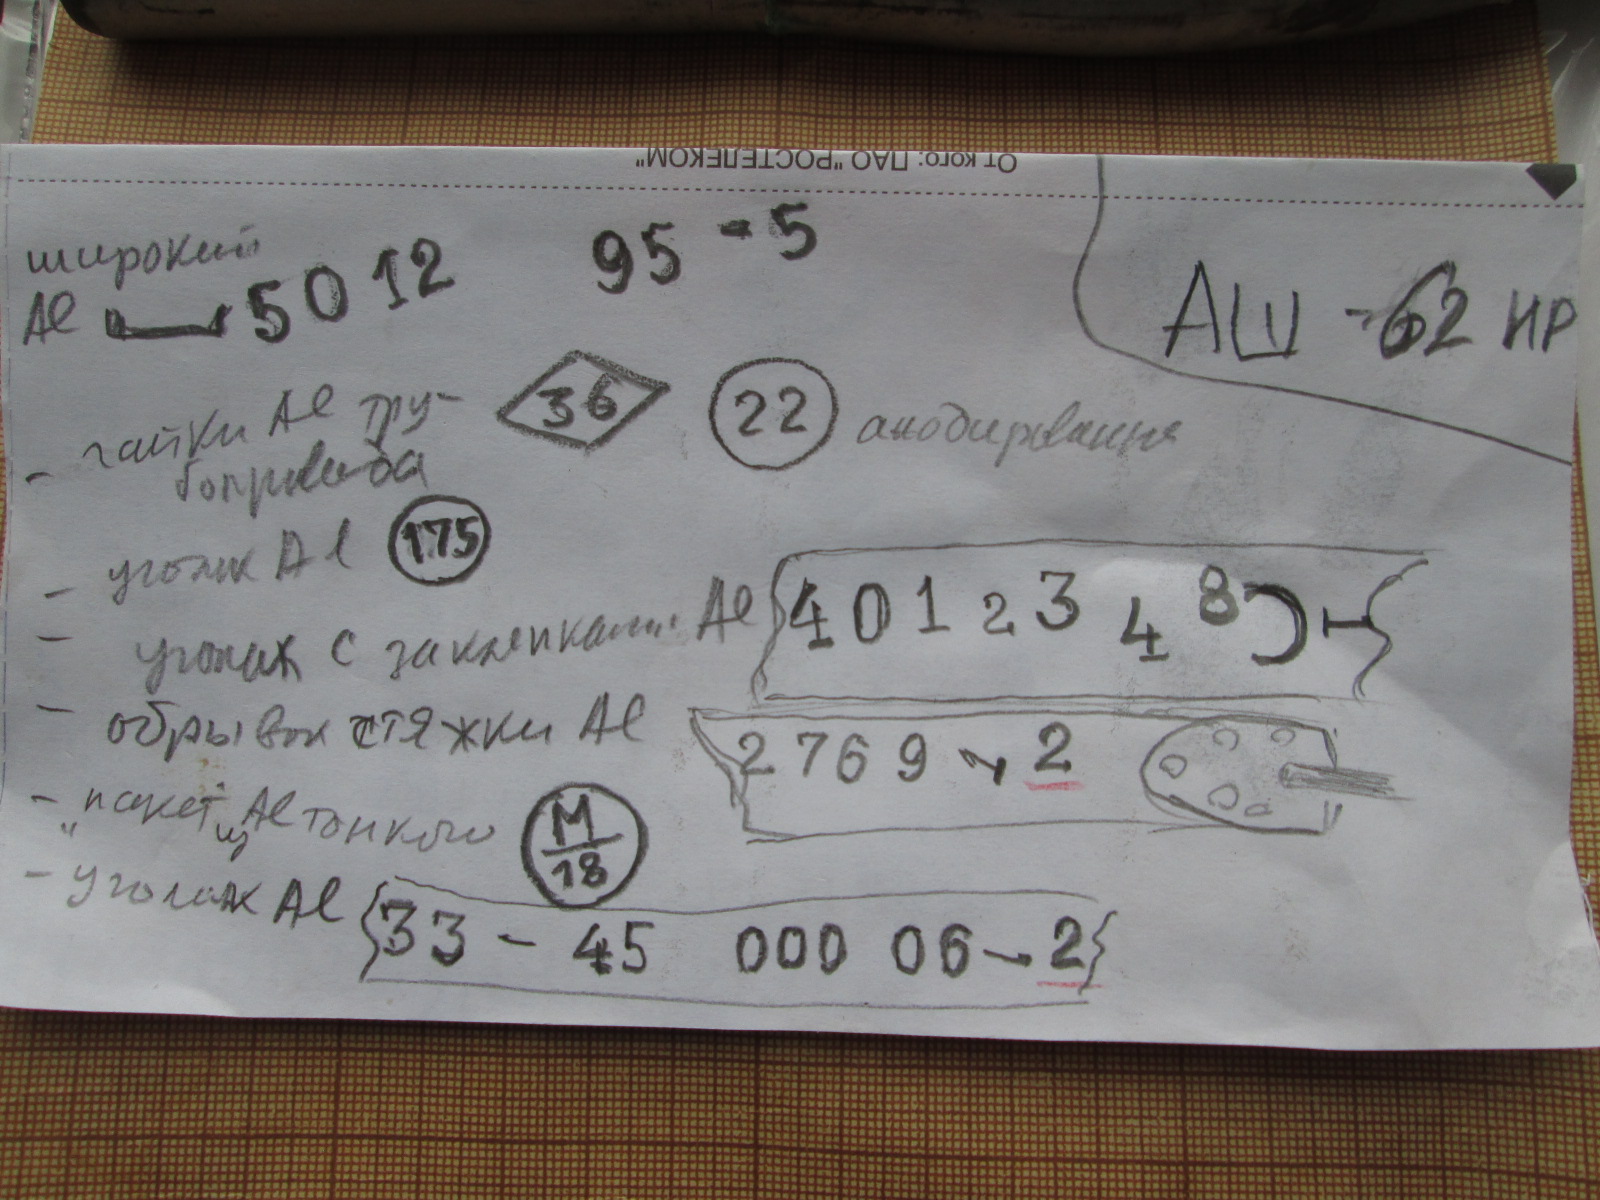 От кого: ПАО "РОСТЕЛЕКОМ"
широкий
Al 5012 95-5
АШ-62 ИР
- гайки Al тру-
бопровода 36 22 анодированая
- уголок Al 175
- уголок с заклепками Al 4012348 Т
- обрывок стяжки Al 2769-2
- "пакет" из Al тонкого М/18
- уголок Al 33-45 000 06-2